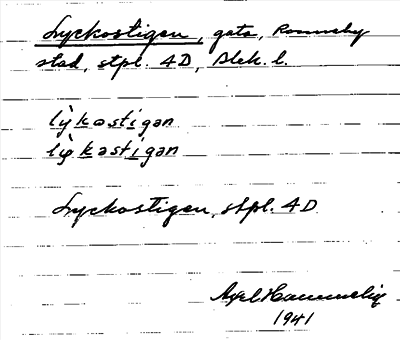 Lyckostigen, gata, Ronneby
stad, stpl. 4D, Blek. l.
lỳkostigan
lỳkastigan
Lyckostigen, stpl. 4D
Axel
1941